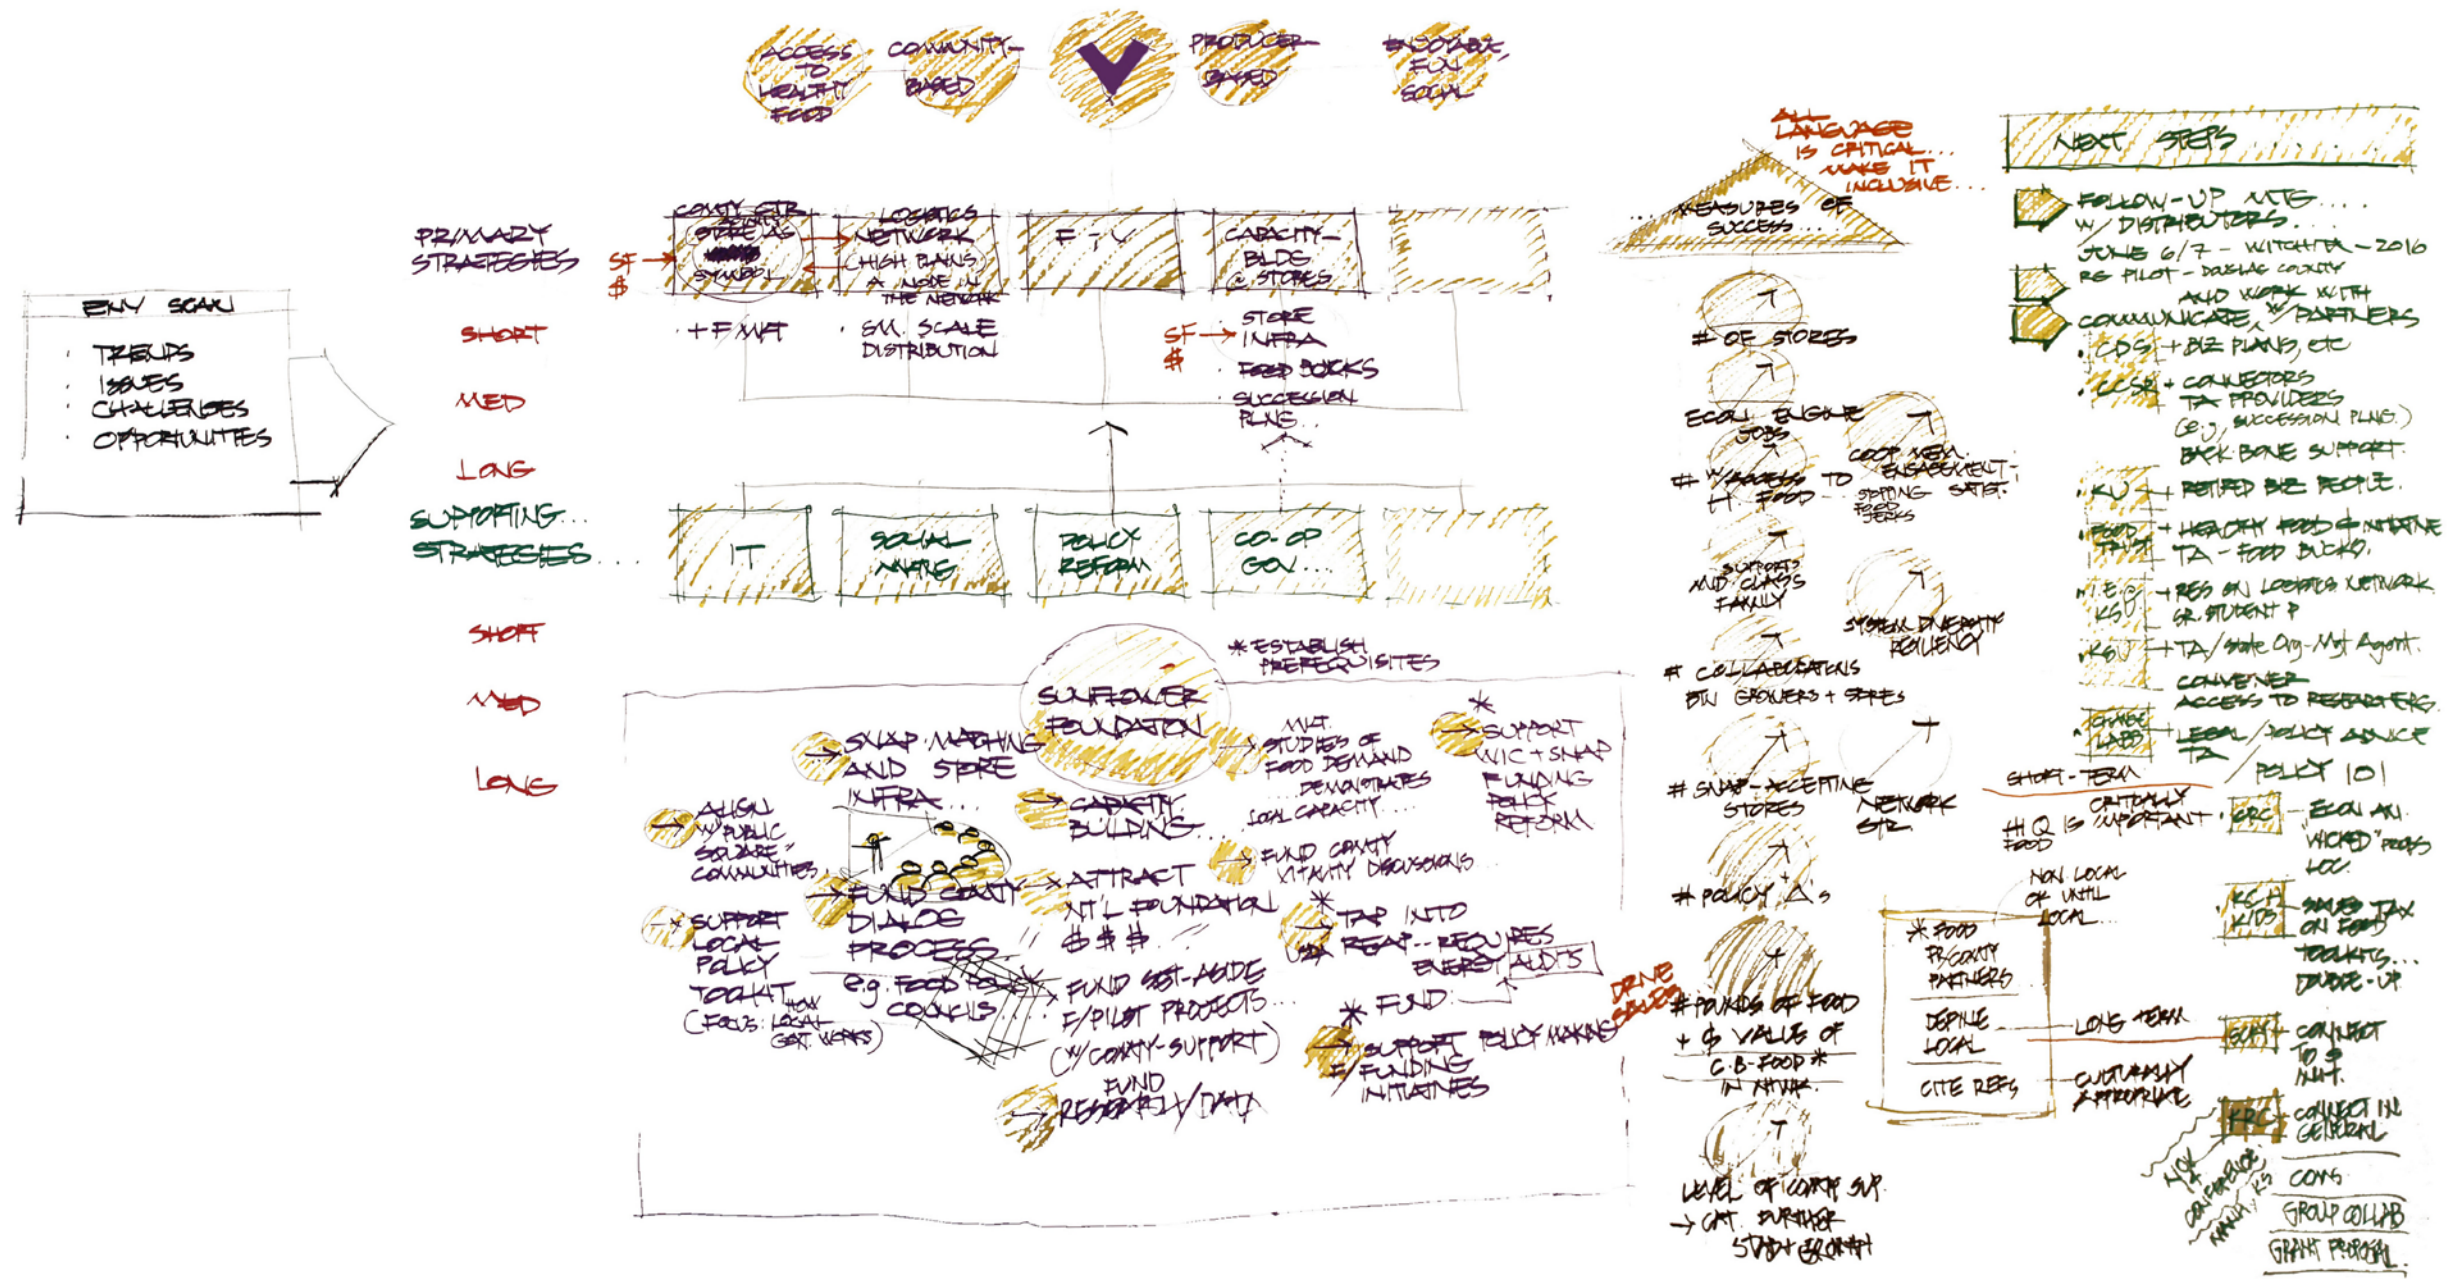 ACCESS
TO
HEALTHY
FOOD
COMMUNITY-
BASED
V
PRODUCER-
BASED
ENJOYABLE,
FUN
SOCIAL
ENV SCAN
· TRENDS
· ISSUES
· CHALLENGES
· OPPORTUNITIES
PRIMARY
STRATEGIES
SHORT
MED
LONG
SUPPORTING...
STRATEGIES...
SHORT
MED
LONG
SF →
$
STORE AS
SYMBOL
· + F MKT
LOGISTICS
NETWORK
(HIGH PLAINS)
A NODE IN
THE NETWORK
· SM. SCALE
DISTRIBUTION
F
CAPACITY-
BLDG
@ STORES
SF →
$
· STORE
INFRA
· FOOD BUCKS
· SUCCESSION
PLNG...
IT
SOCIAL
MKTG
POLICY
REFORM
CO-OP
GOV...
* ESTABLISH
PREREQUISITES
SUNFLOWER
FOUNDATION
→ SNAP MATCHING
AND STORE
INFRA...
→ ALIGN
W/ "PUBLIC
SQUARE"
COMMUNITIES
→ SUPPORT
LOCAL
POLICY
TOOLKIT
(FOCUS: HOW LOCAL
GOV. WORKS)
→ FUND COMTY
DIALOG
PROCESS
e.g. FOOD POLICY
COUNCILS
→ CAPACITY
BUILDING...
→ ATTRACT
NT'L FOUNDATION
$ $ $
* → FUND SET-ASIDE
F/PILOT PROJECTS...
(W/ COMTY-SUPPORT)
→ FUND
RESEARCH/DATA
→ MKT.
STUDIES OF
FOOD DEMAND
... DEMONSTRATES
LOCAL CAPACITY...
→ FUND COMTY
VITALITY DISCUSSIONS...
* → TAP INTO
USDA REAP-- REQUIRES
ENERGY AUDITS
* FUND:
→ SUPPORT POLICY MAKING
F/FUNDING
INITIATIVES
* → SUPPORT
WIC + SNAP
FUNDING
POLICY
REFORM
ALL
LANGUAGE
IS CRITICAL...
MAKE IT
INCLUSIVE...
... MEASURES OF
SUCCESS...
# OF STORES
ECON ENGINE
JOBS
# W/ACCESS TO
H. FOOD
COOP MEM.
ENGAGEMENT-
SHPPING SATISF.
FOOD
JERKS
SUPPORTS
MID CLASS
FAMILY
SYSTEM DIVERSITY
RESILIENCY
# COLLABORATIONS
BTW GROWERS + STORES
# SNAP-ACCEPTING
STORES
NETWORK
STR.
# POLICY Δ's
DRIVE
SALES
# POUNDS OF FOOD
+ $ VALUE OF
C.B-FOOD *
IN NTWK.
LEVEL OF COMTY SUP.
NEXT STEPS....
FOLLOW-UP MTG....
W/ DISTRIBUTORS....
JUNE 6/7 - WITCHITA - 2016
RE PILOT - DOUGLAS COUNTY
AND WORK WITH
COMMUNICATE W/ PARTNERS
· CDS + BIZ PLANS, etc
· CCSR + CONNECTORS
TA PROVIDERS
(e.g., SUCCESSION PLNG.)
BACK BONE SUPPORT.
· KU + RETIRED BIZ PEOPLE.
· FOOD TRUST + HEALTHY FOOD $ INITIATIVE
TA - FOOD BUCKS.
· I.E. @ KSU + RES ON LOGISTICS NETWORK
SR. STUDENT P
· KSU + TA/State Org-Mgt Agent.
CONVENER
ACCESS TO RESEARCHERS.
· CHANGE LABS + LEGAL/POLICY ADVICE
TA
/POLICY 101
SHORT-TERM
CRITICALLY
HI Q IS IMPORTANT
FOOD
NON LOCAL
OR UNTIL
LOCAL...
* FOOD
F/COMTY
PARTNERS
DEFINE
LOCAL
CITE REFS
LONG TERM
CULTURALLY
APPROPRIATE
· CRC - ECON AN.
"WICKED" PROBS
LOC.
KIDS - SALES TAX
ON FOOD
TOOLKITS...
DOUBLE-UP
CONNECT
TO $
INIT.
KRC - CONNECT IN
GENERAL
CONFERENCE,
MANH, KS
COMS
GROUP COLLAB
GRANT PROPOSAL